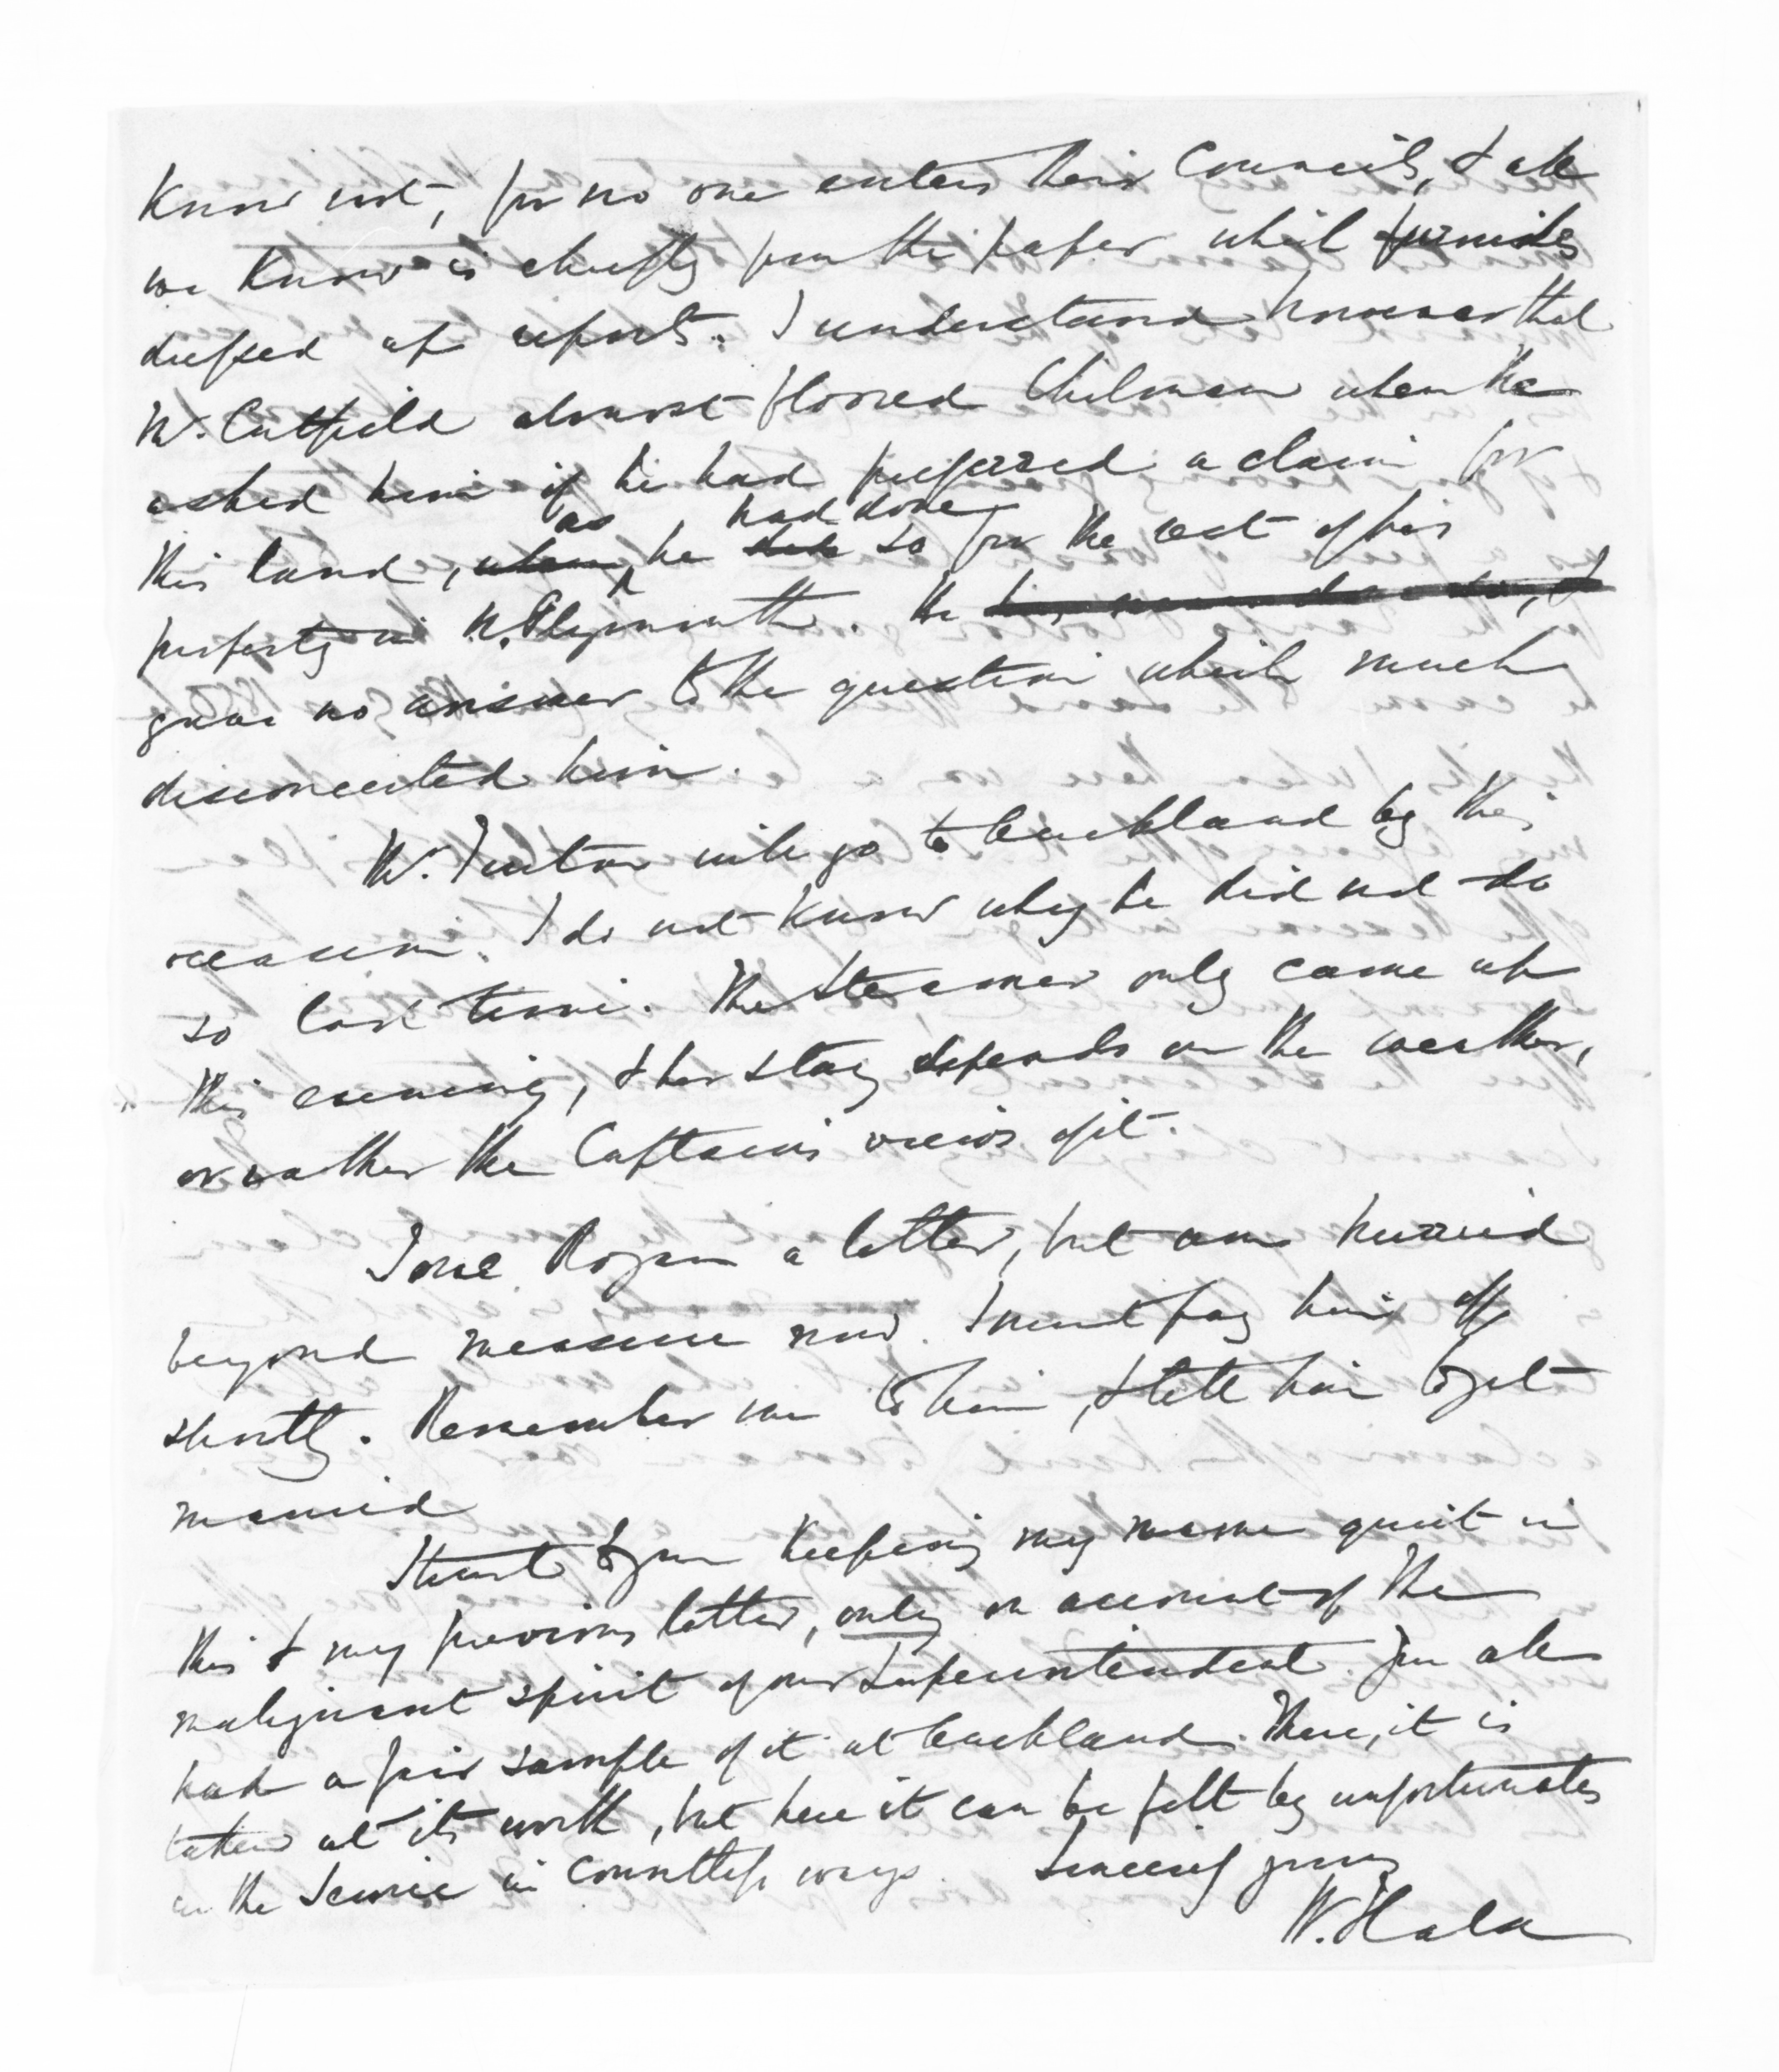 know not, for no one enters their Councils, & all
we know is chiefly from the paper which furnishes
dressed up reports. I understand however that
Mr. Cutfield almost floored Chilman when he
asked him if he had preferred a claim for
this land, when as he did had done so for the rest of his
property in N. Plymouth. He
gave no answer to the question which much
disconcerted him.
Mr. Turton will go to Auckland by this
occasion. I do not know why he did not do
so last time. The Steamer only came up
this evening, & her stay depends on the weather,
or rather the Captain's views of it.
I owe Rogan a letter, but am hurried
beyond measure now. I must pay him off
shortly. Remember me to him, & tell him to get
married
I trust to your keeping my name quiet in
this & my previous letter, only on account of the
malignant spirit of our Superintendent. You all
had a fair sample of it at Auckland. There, it is
taken at its worth, but here it can be felt by unfortunates
in the Service in countless ways. Sincerely yours
W. Halse